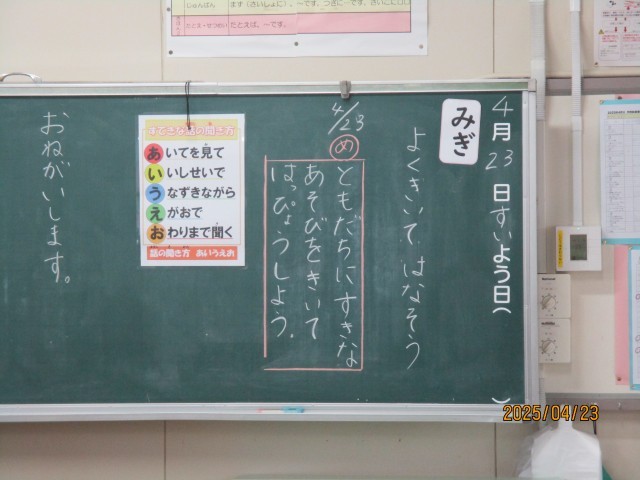 4月23日すいよう日( )
みぎ
よくきいて はなそう
4/23
め
ともだちにすきな
あそびをきいて
はっぴょうしよう.
すてきな話の聞き方
あいてを見て
いいしせいで
うなずきながら
えがおで
おわりまで聞く
話の聞き方 あいうえお
おねがいします。
たとえば、~です。
2025/04/23